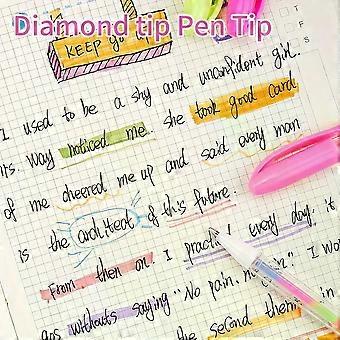 Diamond tip Pen Tip
KEEP go
T F S
I used to be a shy and unconfident girl.
rs. Way noticed me. she took good card
of me cheered me up and said every man
is the architect of this future.
From. then on I practi every day. it
gos withouts saying "No pain. n in" I wo
the second them